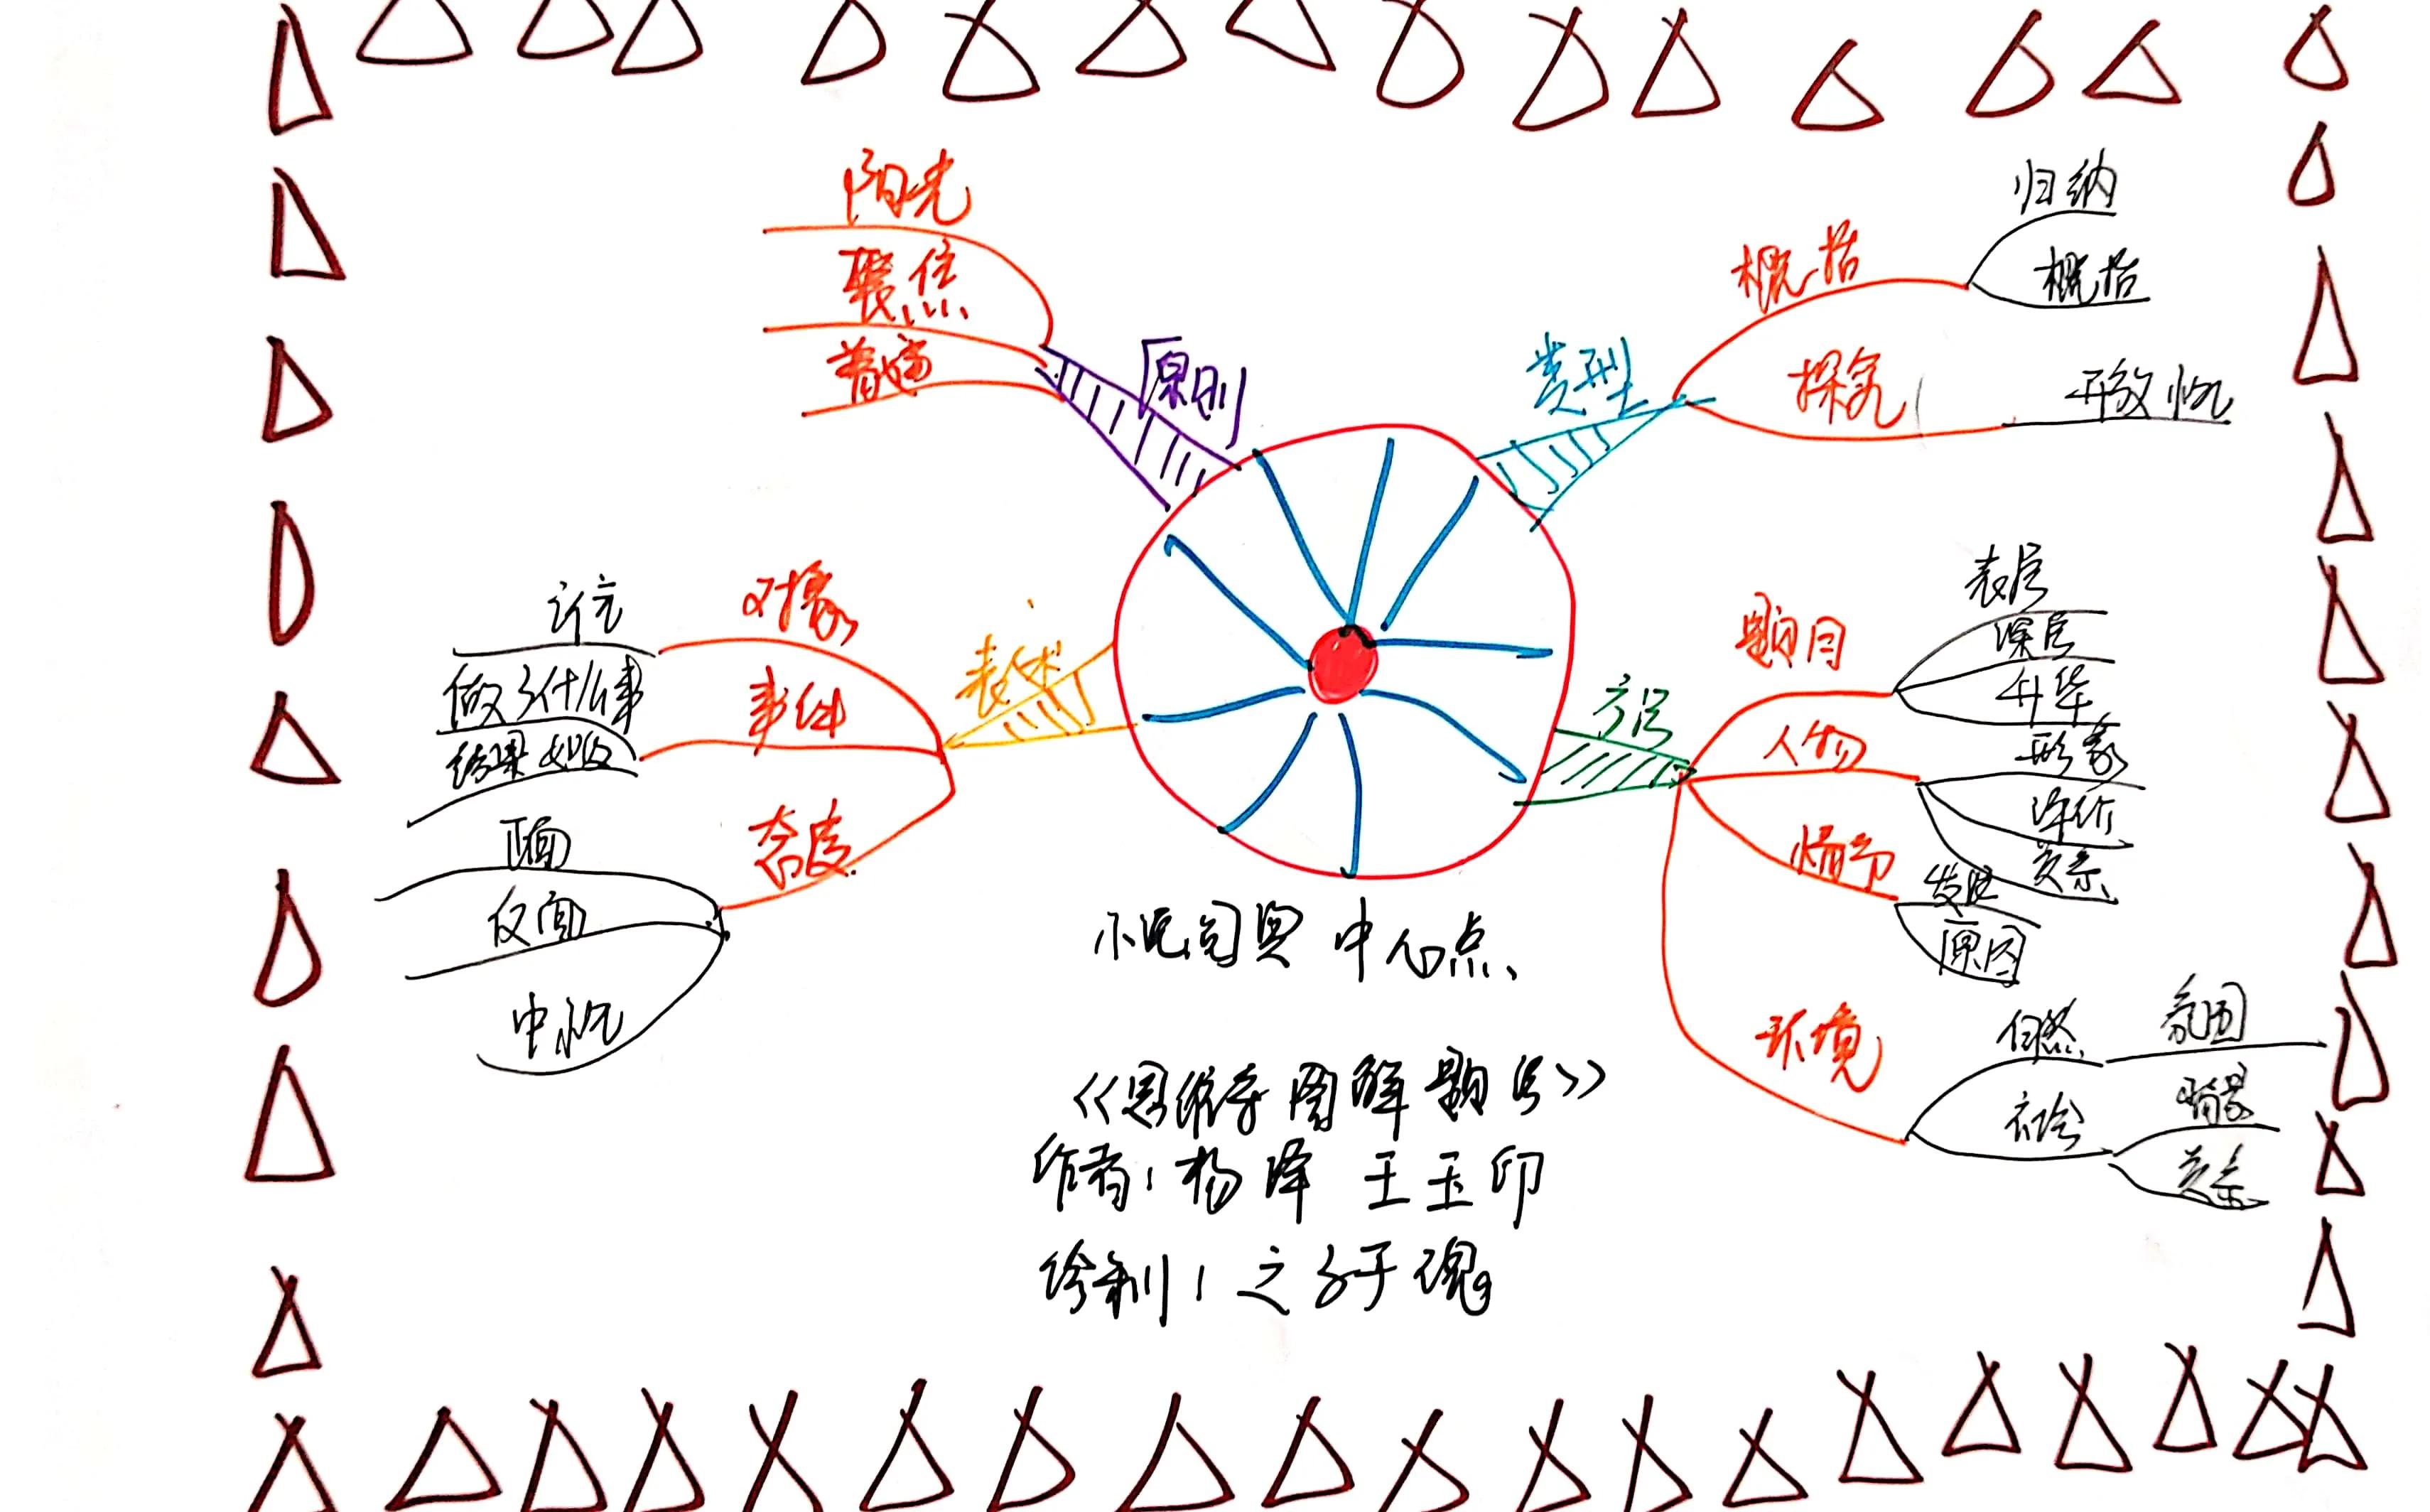 原则
阳光
聚焦
普遍
类型
概括
归纳
概括
探究
开放性
方法
题目
表层
深层
升华
人物
形象
评价
关系
情节
发展
原因
环境
自然
氛围
社会
背景
关系
表述
对象
事件
做了什么事
结果如何
态度
正面
反面
中性
小说 中心点
《思维导图解题法》
作者：杨泽 王玉印
绘制：之子于魂